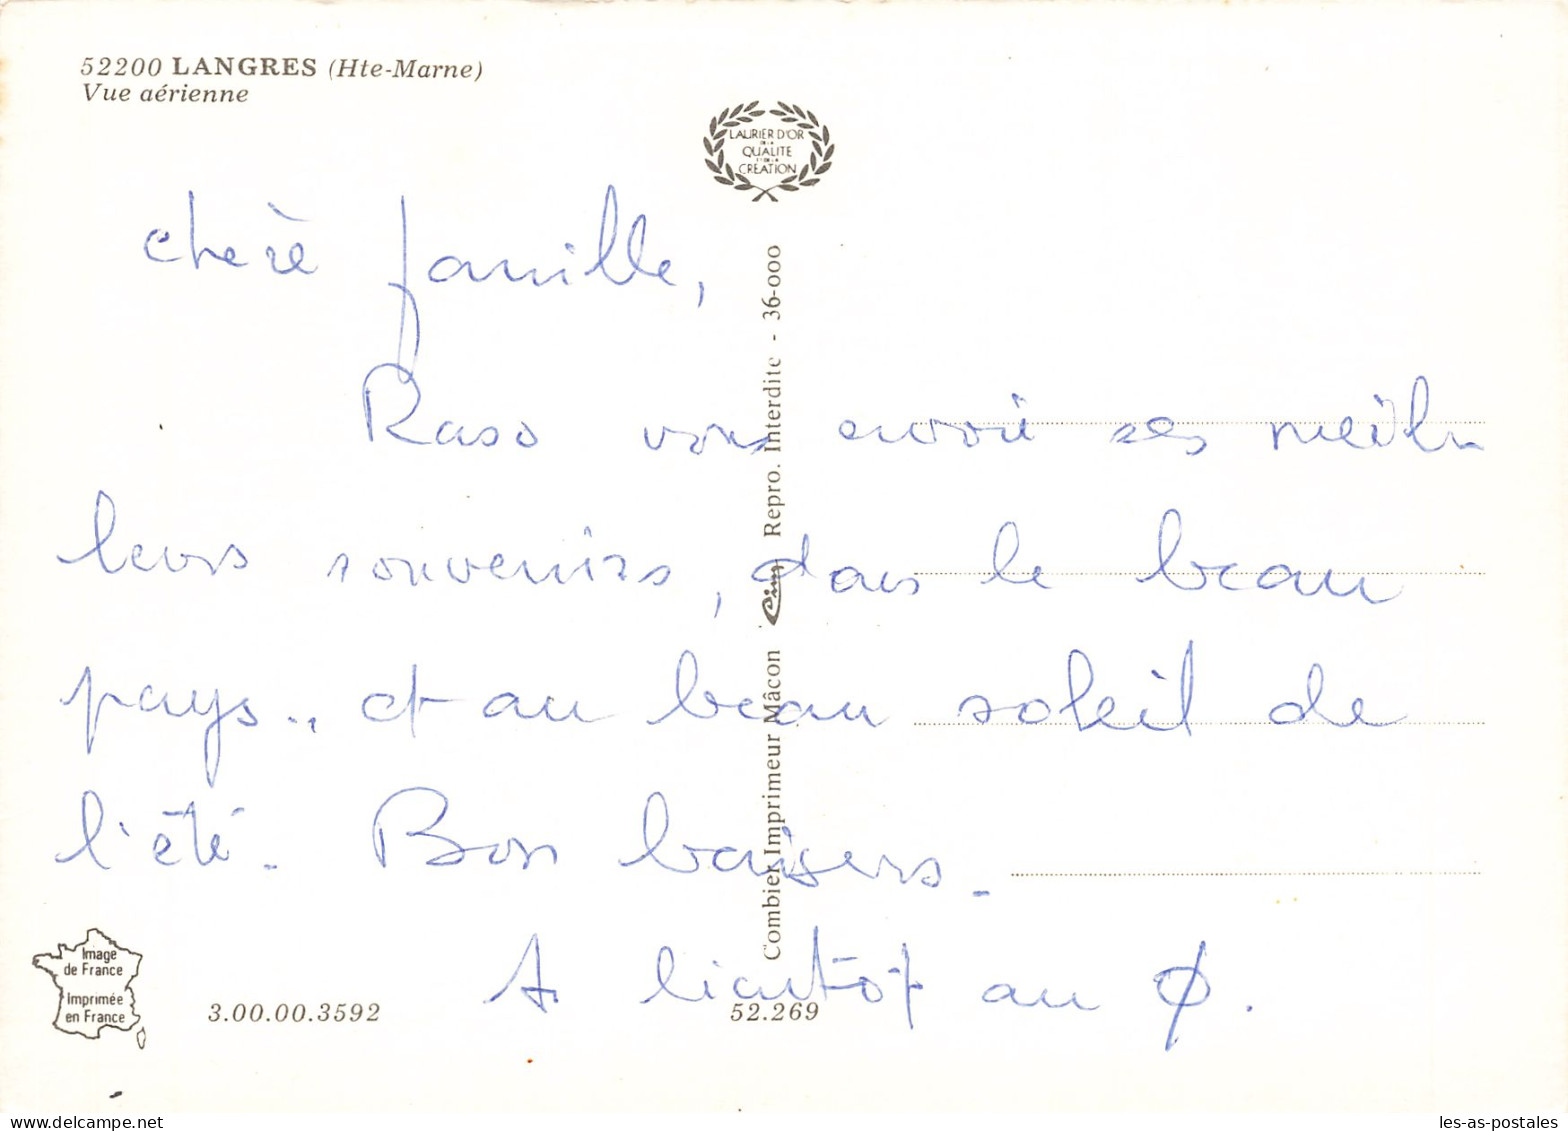 52200 LANGRES (Hte-Marne)
Vue aérienne
LAURIER D'OR
DE LA
QUALITE
ET DE LA
CRÉATION
chère famille,
Raso vous envoie ses meil
leurs souvenirs, dans le beau
pays., et au beau soleil de
l'été. Bon baisers.
A bientôt au
Combier Imprimeur Mâcon Cim Repro. Interdite - 36-000
Image
de France
Imprimée
en France
3.00.00.3592
52.269
les-as-postales